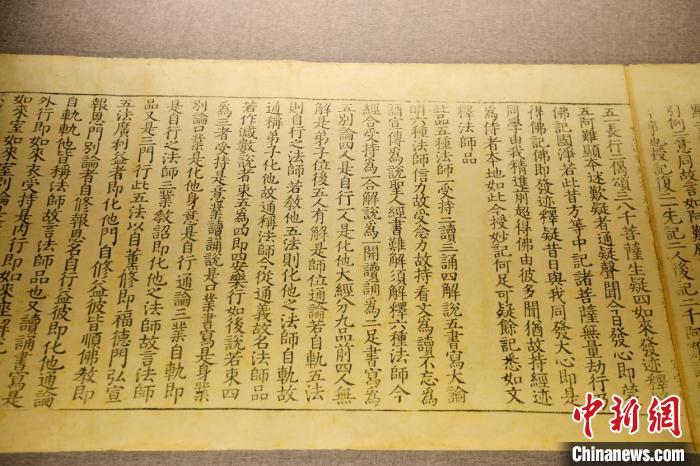 五一長行二偈頌三八千菩薩生疑四如來發迹釋
五阿難顯本述歎疑者通疑聲聞今日發心即當
佛記國淨若此昔方等中記諸菩薩無量劫行
得佛記佛即發迹釋疑昔日與我同發大心即是
同學由我精進前超得佛由彼多聞猶故持經迹
為侍者本地如此今授妙記何足可疑餘記悉如文
釋法師品
此品五種法師一受持二讀三誦四解說五書寫大論
明六種法師信力故受念力故持看文為讀不忘為
誦宣傳為說聖人經書難解須解釋六種法師今
經合受持為一合解說為一開讀誦為二足書寫為
五別論四人是自行一人是化他大經分九品前四人無
解是弟子位後五人有解是師位通論若自軌五法
則自行之法師若教他五法則化他之法師自軌故
通稱弟子化他故通稱法師今從通義故名法師品
若作減數說者束五為四即如安樂行如後說若束四
為三者受持是意業讀誦說是口業書寫是身業
別論口業是化他身意是自行通論三業自軌即
是自行之法師三業教詔即化他之法師故言法師
品又是三門行此五法以自熏修即福德門弘宣
五法廣利益者即化他門自修益彼皆順佛教即
報恩門別論者自修報恩名自行益彼即化他通論
自軌軌他皆稱法師故言法師品也又讀誦書寫是
外行即如來衣受持是內行即如
中新网
Chinanews.com